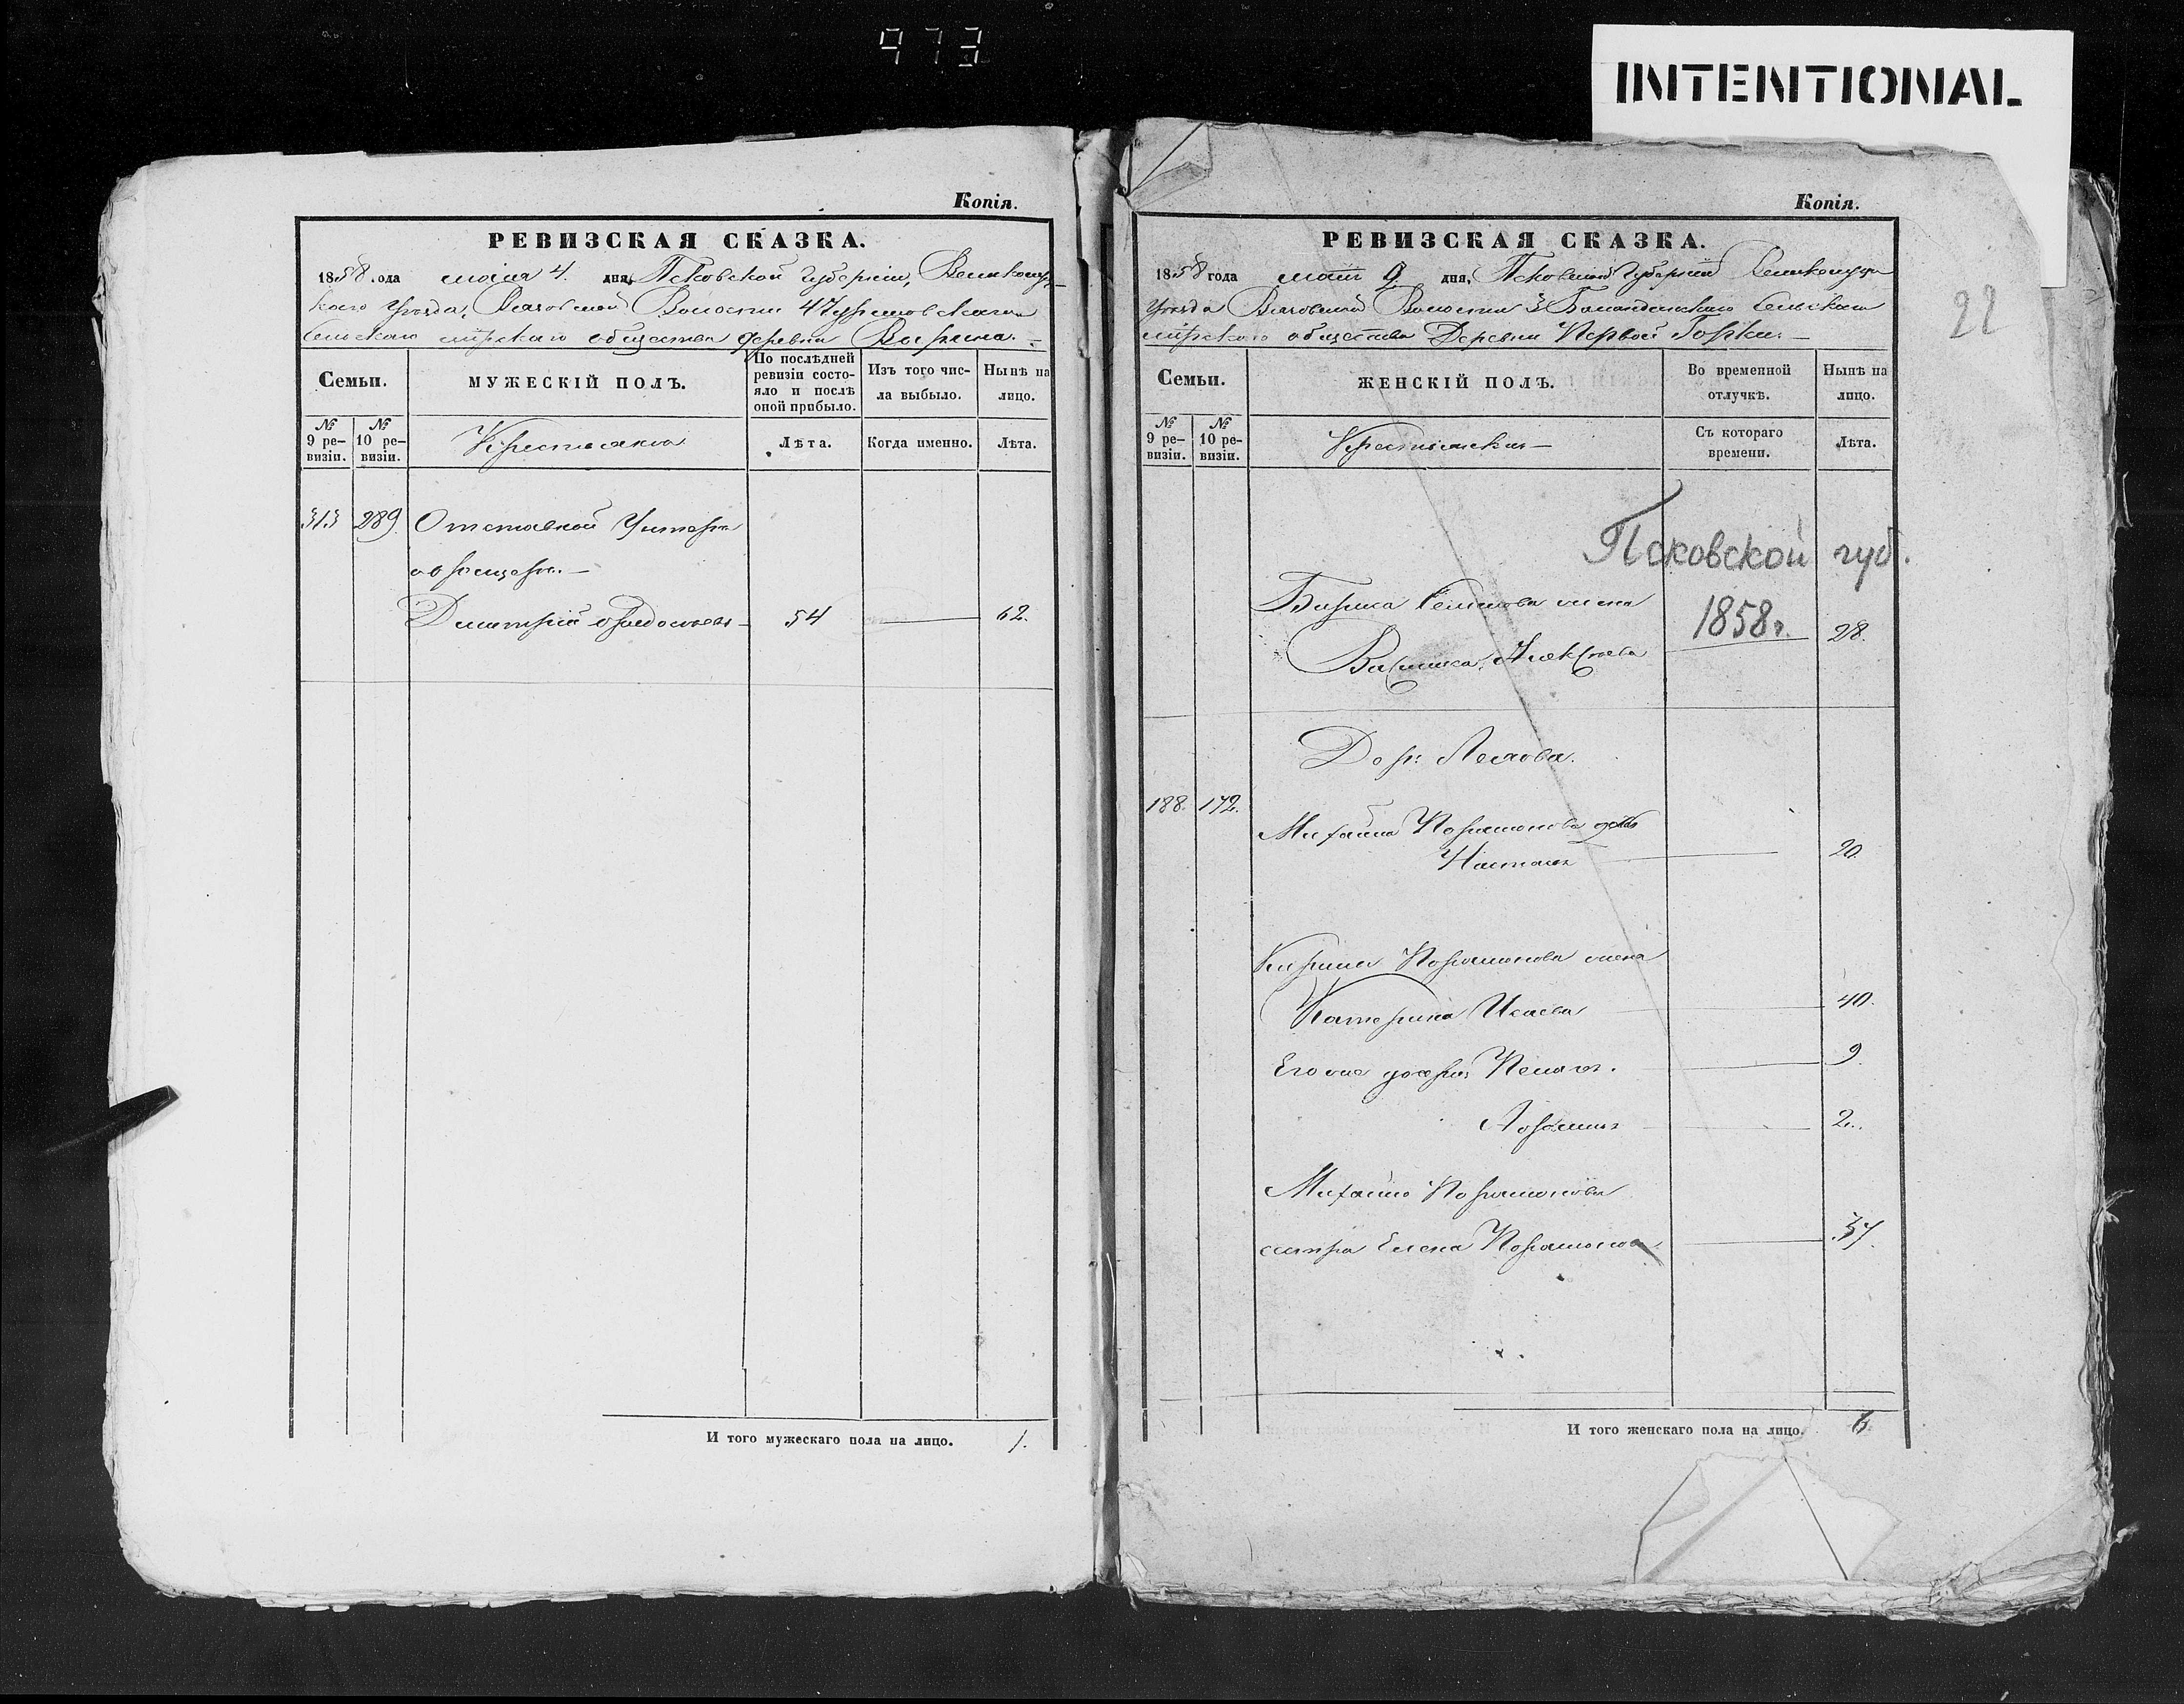 973
INTENTIONAL
Копія.
РЕВИЗСКАЯ СКАЗКА.
1858 года маія 4. дня, Псковской Губерніи, Великолуц-
каго Уѣзда, Волости 4
Сельскаго мірскаго общества деревни
Семьи.
МУЖЕСКІЙ ПОЛЪ.
По послѣдней ревизіи состояло и послѣ оной прибыло.
Изъ того числа выбыло.
Нынѣ на лицо.
№ 9 ревизіи.
№ 10 ревизіи.
Крестьяне
Лѣта.
Когда именно.
Лѣта.
313 289. Отставной Унтеръ
офицеръ.
Дмитрій 54 62.
И того мужескаго пола на лицо. 1.
Копія.
22
РЕВИЗСКАЯ СКАЗКА.
1858 года маія 9. дня, Псковской Губерніи Великолуц
Уѣзда Волости 3 Сельскаго
мірскаго общества Деревни Первой Горки.
Семьи.
ЖЕНСКІЙ ПОЛЪ.
Во временной отлучкѣ.
Нынѣ на лицо.
№ 9 ревизіи.
№ 10 ревизіи.
Крестьянскія
Съ котораго времени.
Лѣта.
Псковской губ.
1858г.
жена
Алексѣева 28.
Дер:
188. 172. Михайла Парамонова дочь
Настасья 20.
Парамонова жена
Катерина Исаева 40.
Его же дочери Пелагея. 9
2.
Михайло Парамонова
сестра Елена Парамонова 37.
И того женскаго пола на лицо. 6